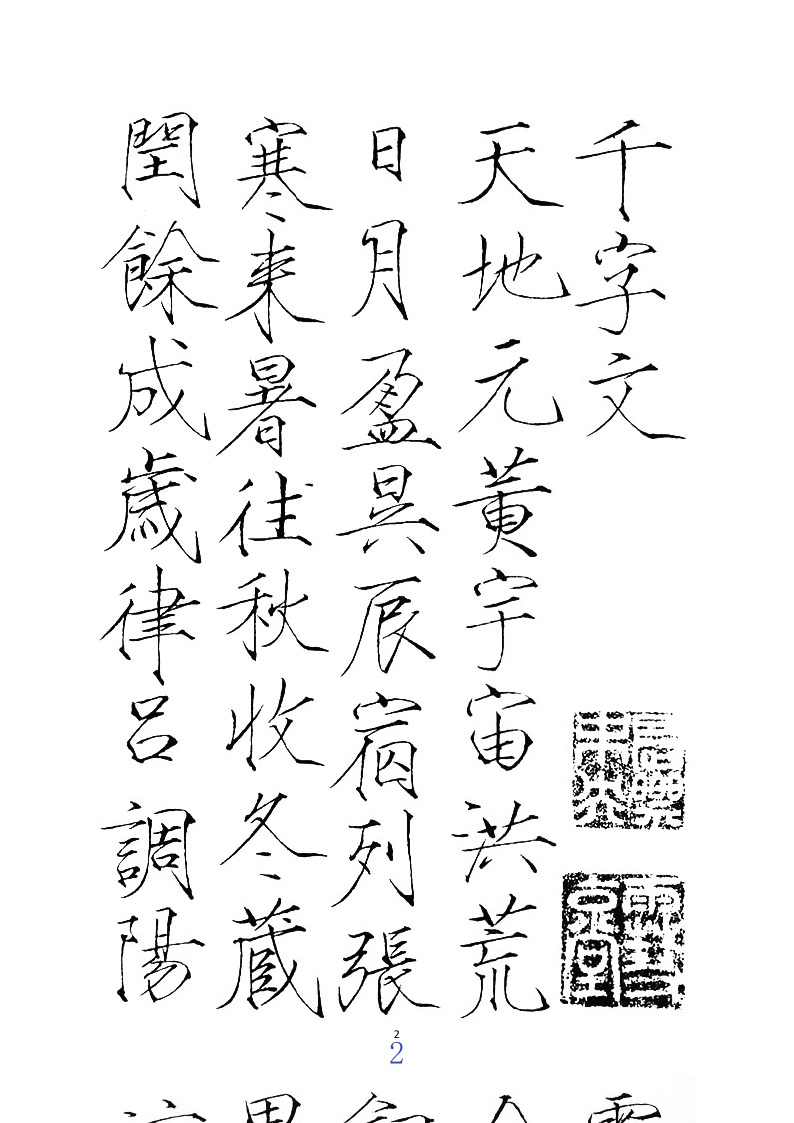 千字文
天地元黃宇宙洪荒
日月盈昃辰宿列張
寒来暑往秋收冬蔵
閏餘成歲律呂調陽
2
2